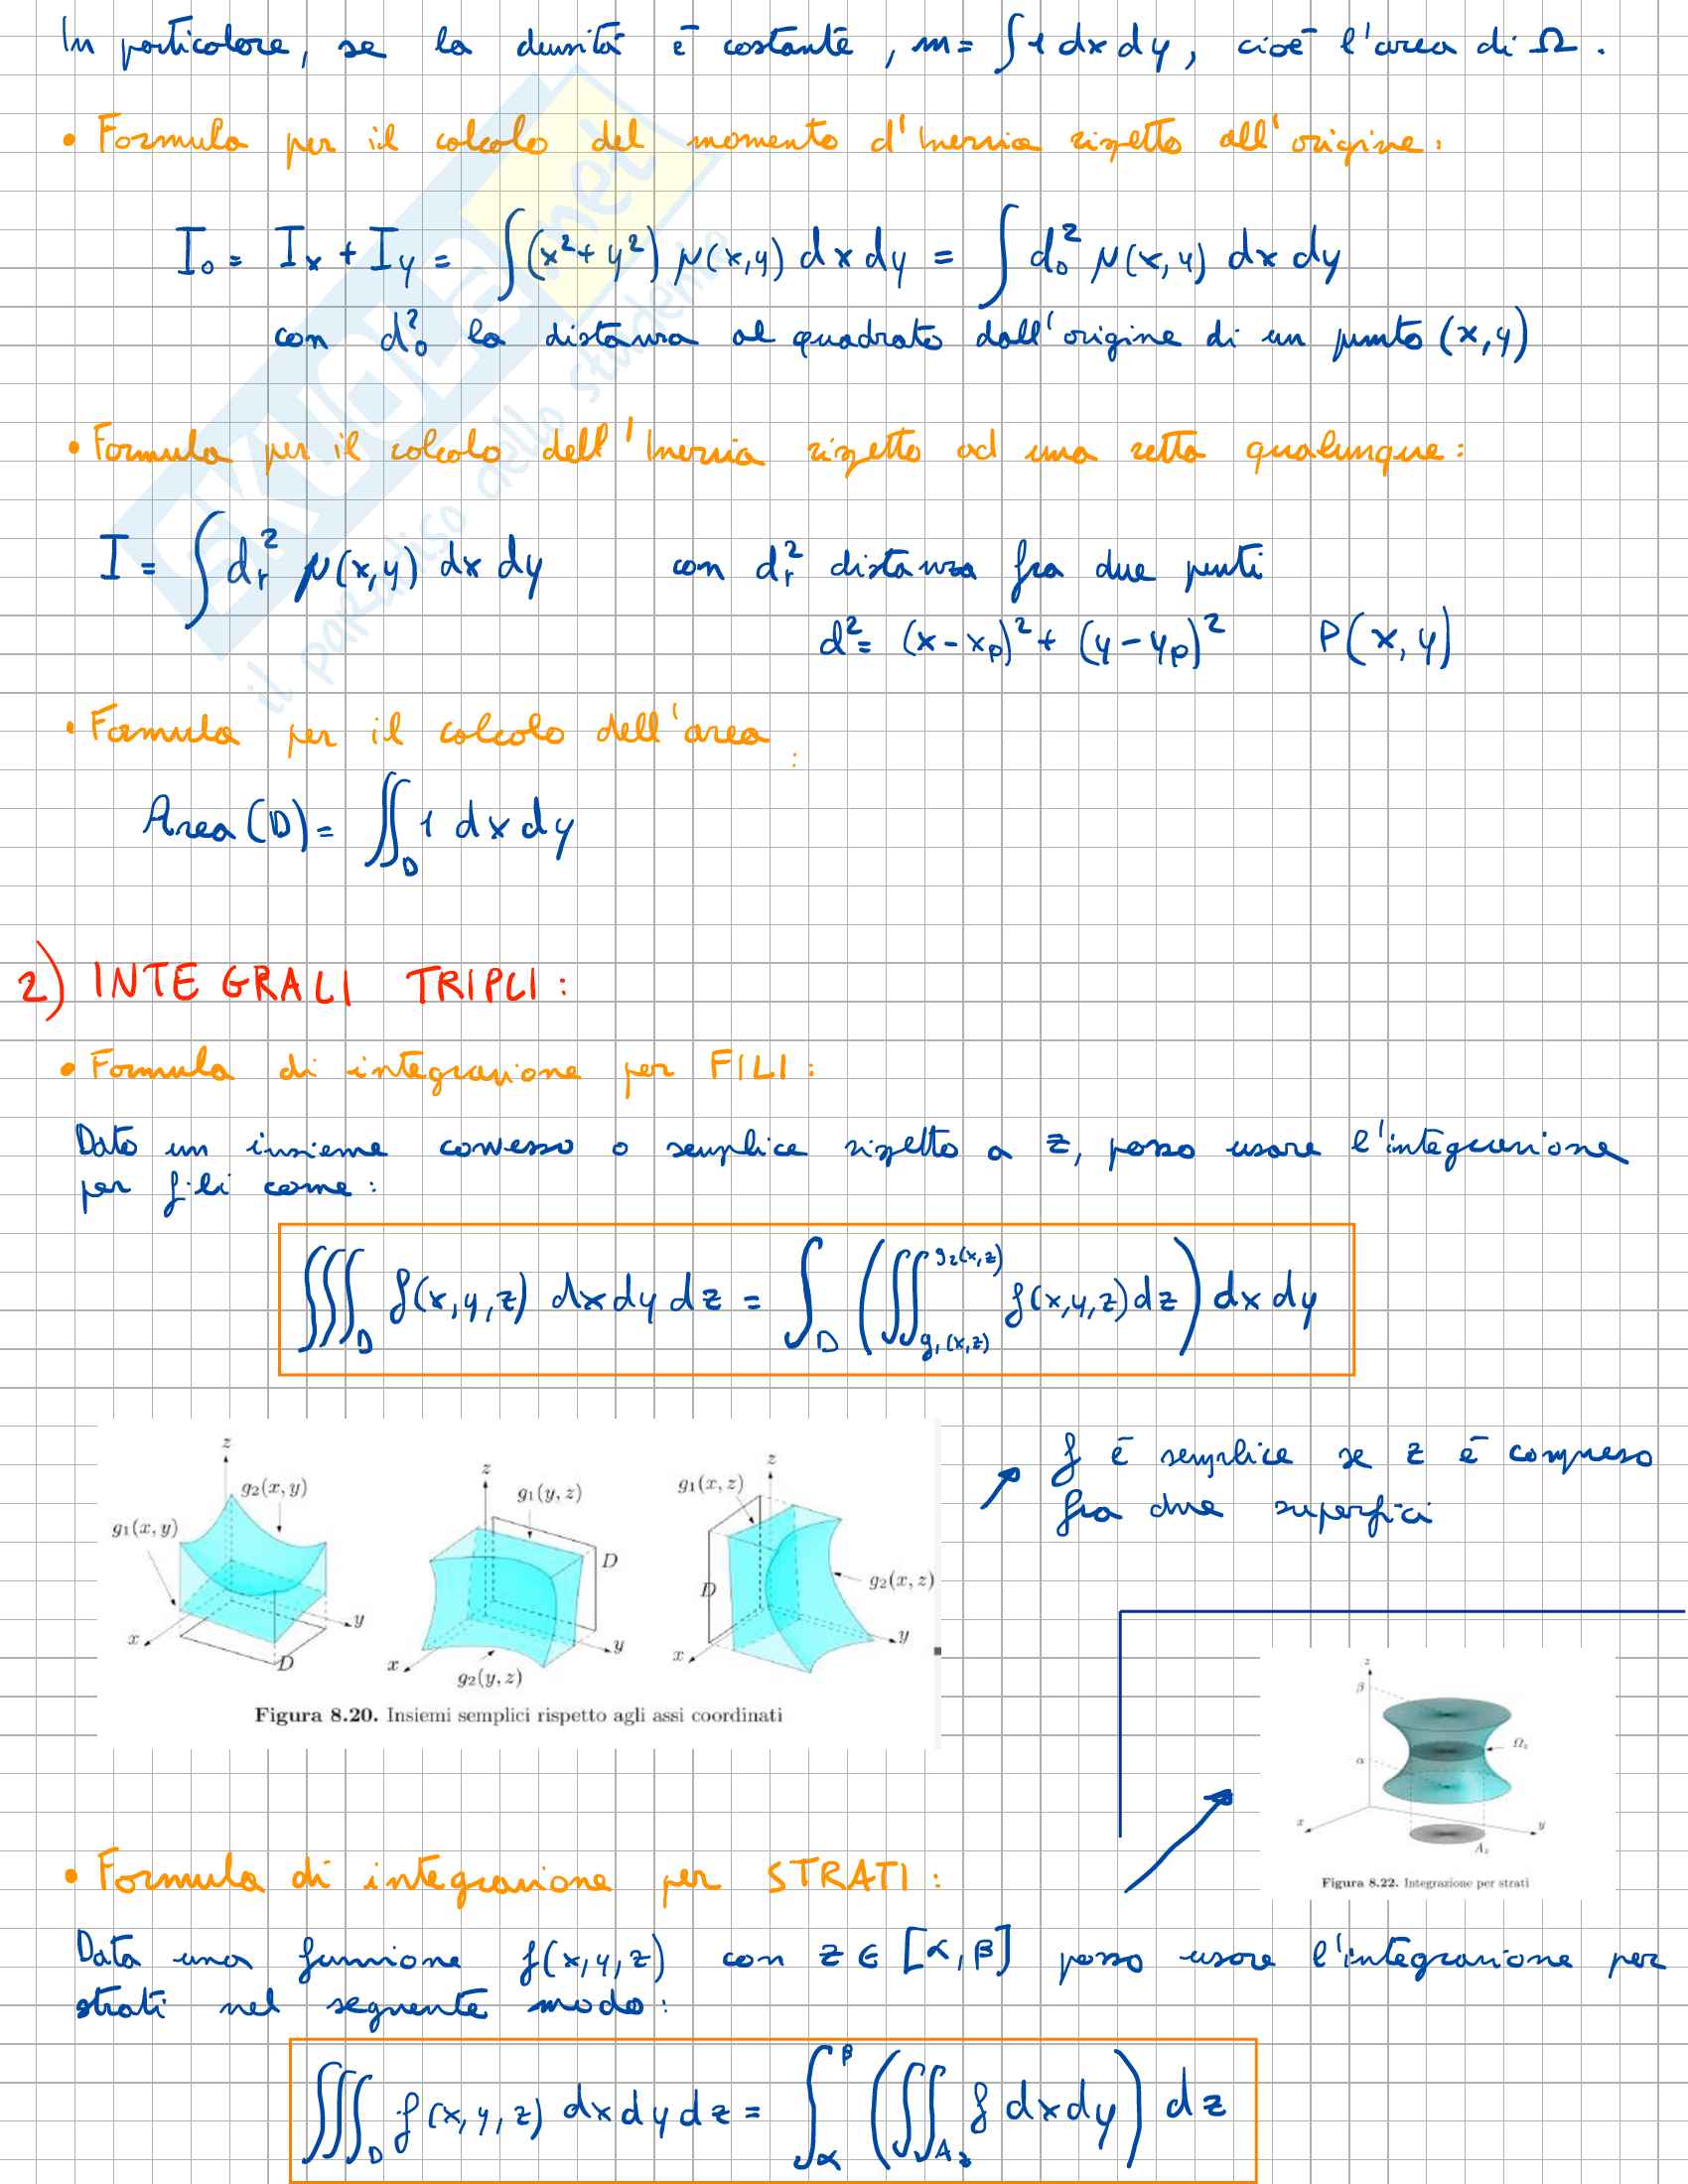 In particolare, se la densità è costante, m = ∫ 1 dx dy, cioè l'area di Ω.
• Formula per il calcolo del momento d'Inerzia rispetto all'origine:
I₀ = Iₓ + I_y = ∫(x² + y²) μ(x,y) dx dy = ∫ d₀² μ(x,y) dx dy
con d₀² la distanza al quadrato dall'origine di un punto (x,y)
• Formula per il calcolo dell'Inerzia rispetto ad una retta qualunque:
I = ∫ d_r² μ(x,y) dx dy con d_r² distanza fra due punti
d² = (x - x_p)² + (y - y_p)² P(x,y)
• Formula per il calcolo dell'area:
Area (D) = ∬_D 1 dx dy
2) INTEGRALI TRIPLI:
• Formula di integrazione per FILI:
Dato un insieme convesso o semplice rispetto a z, posso usare l'integrazione
per fili come:
∭_D f(x,y,z) dx dy dz = ∫_D (∬_{g₁(x,z)}^{g₂(x,z)} f(x,y,z) dz) dx dy
f è semplice se z è compreso
fra due superfici
z g₂(x, y) g₁(x, y) x y D
z g₁(y, z) D x y g₂(y, z)
z g₁(x, z) D g₂(x, z) x y
Figura 8.20. Insiemi semplici rispetto agli assi coordinati
z β α Ω_z x y A_z
Figura 8.22. Integrazione per strati
• Formula di integrazione per STRATI:
Data una funzione f(x,y,z) con z ∈ [α, β] posso usare l'integrazione per
strati nel seguente modo:
∭_D f(x,y,z) dx dy dz = ∫_α^β (∬_{A_z} f dx dy) dz
SKUOLA.net
il paradiso dello studente